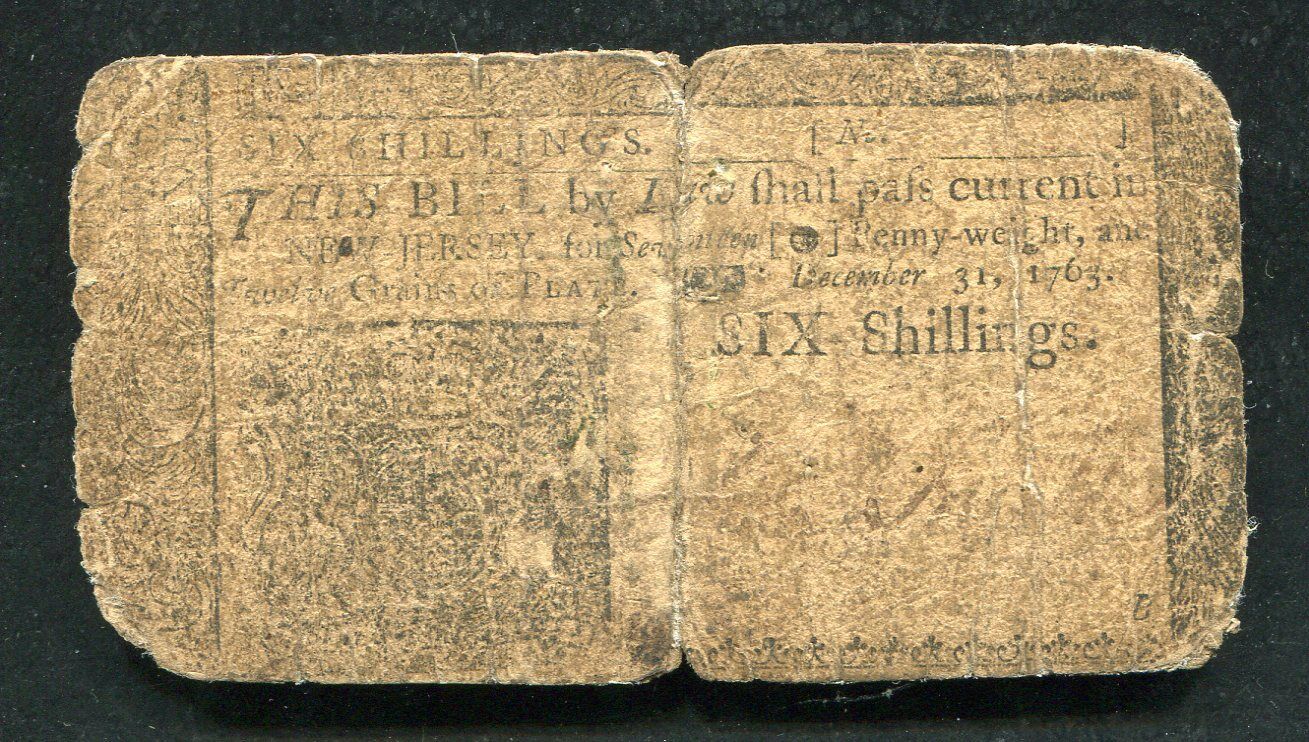 SIX SHILLINGS. [ No. ]
THIS BILL by Law ſhall paſs current in
NEW-JERSEY, for Seventeen [ ] Penny-weight, and
Twelve Grains of PLATE. December 31, 1763.
SIX Shillings.
B